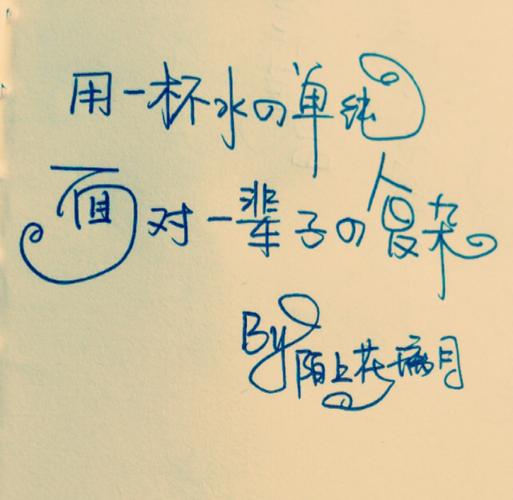 用一杯水の单纯
面对一辈子の复杂
By陌上花满月